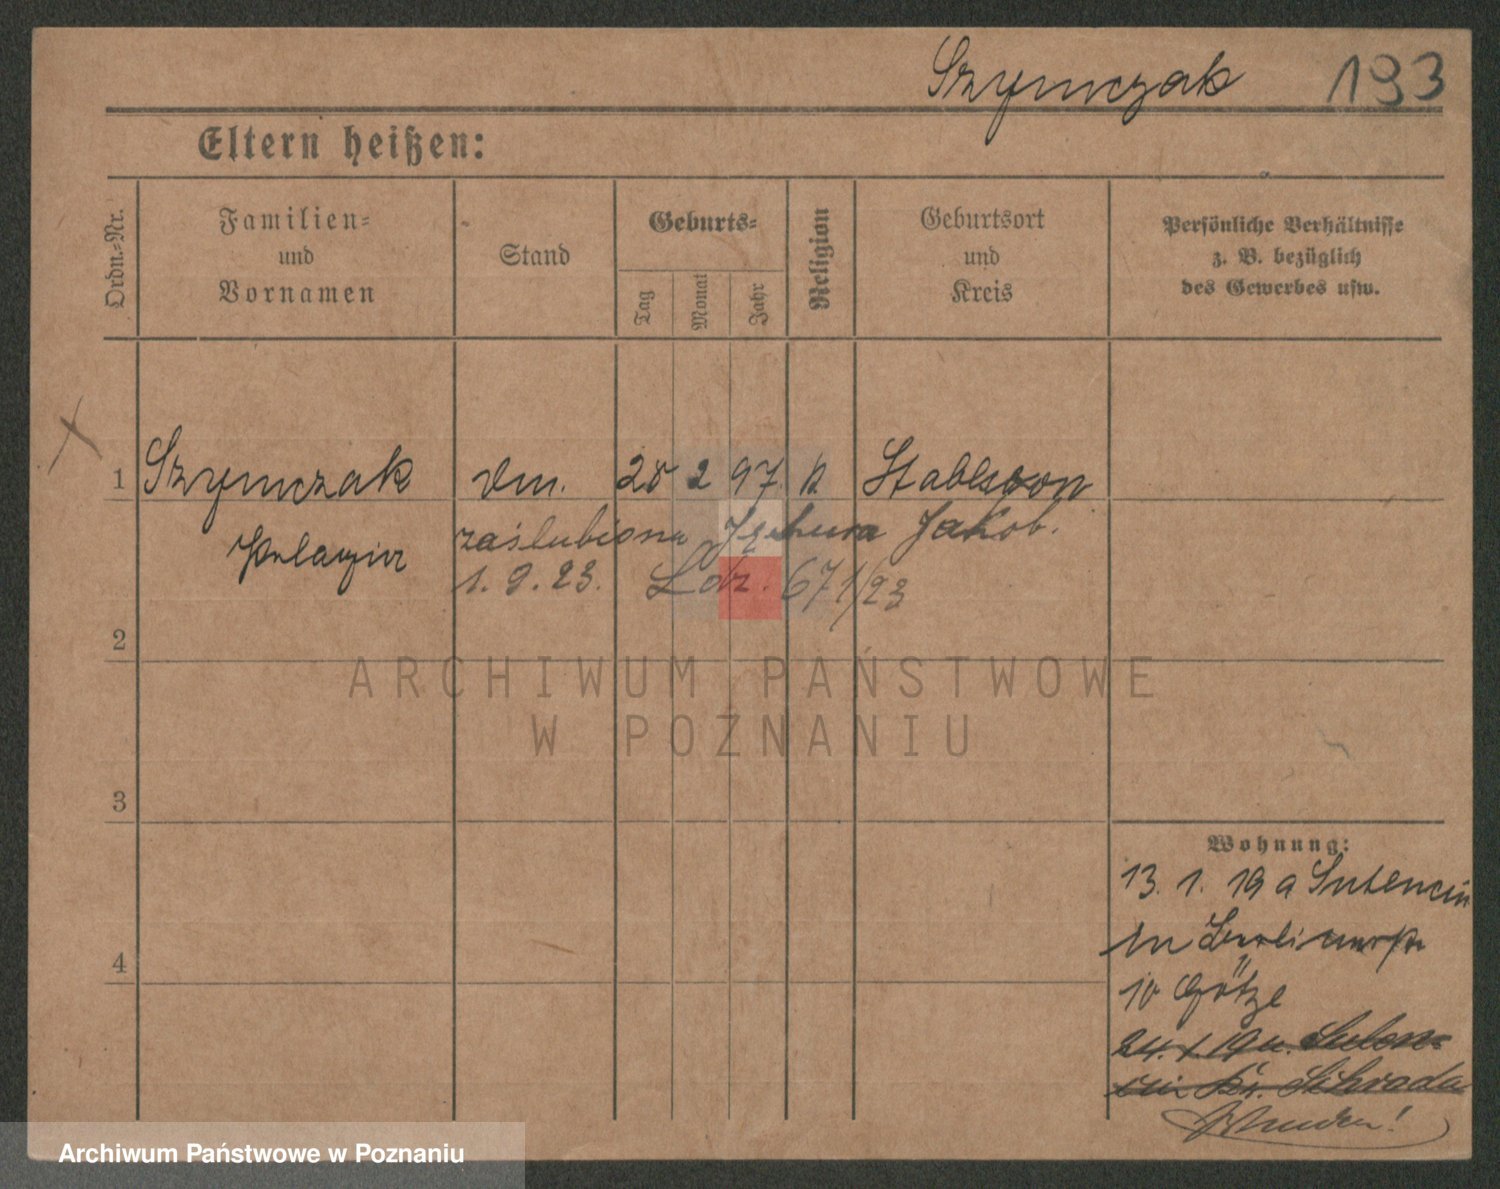 Szymczak 193
Eltern heißen:
Ordn.-Nr.
Familien-
und
Vornamen
Stand
Geburts-
Tag
Monat
Jahr
Religion
Geburtsort
und
Kreis
Persönliche Verhältnisse
z. B. bezüglich
des Gewerbes usw.
1 Szymczak 28 2 97 Stableson
zaślubiona Jakob.
1. 9. 23. Ldz. 671/23
2
ARCHIWUM PAŃSTWOWE
W POZNANIU
3
Wohnung:
13. 1. 19 a
10 Götze
4
24. 1 19
Schroda
Archiwum Państwowe w Poznaniu